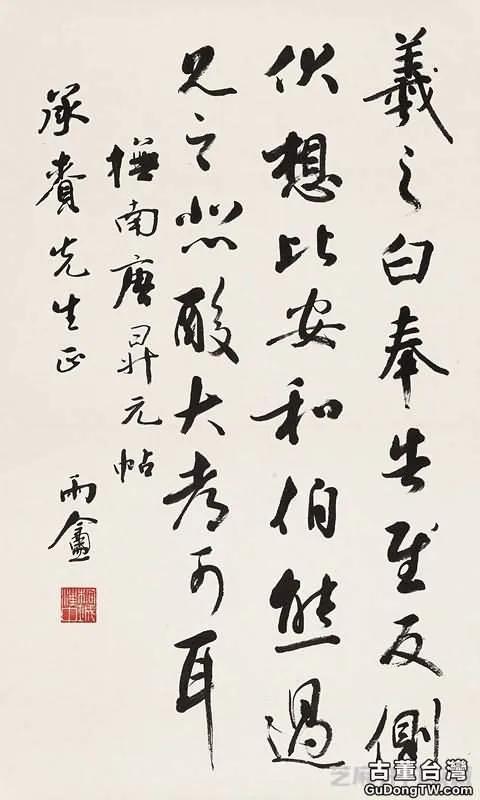 羲之白奉告慰反側
伏想比安和伯熊過
見之悲酸大都可耳
橅南唐昇元帖
承賚先生正
雨盦
古董台灣
GuDongTW.com